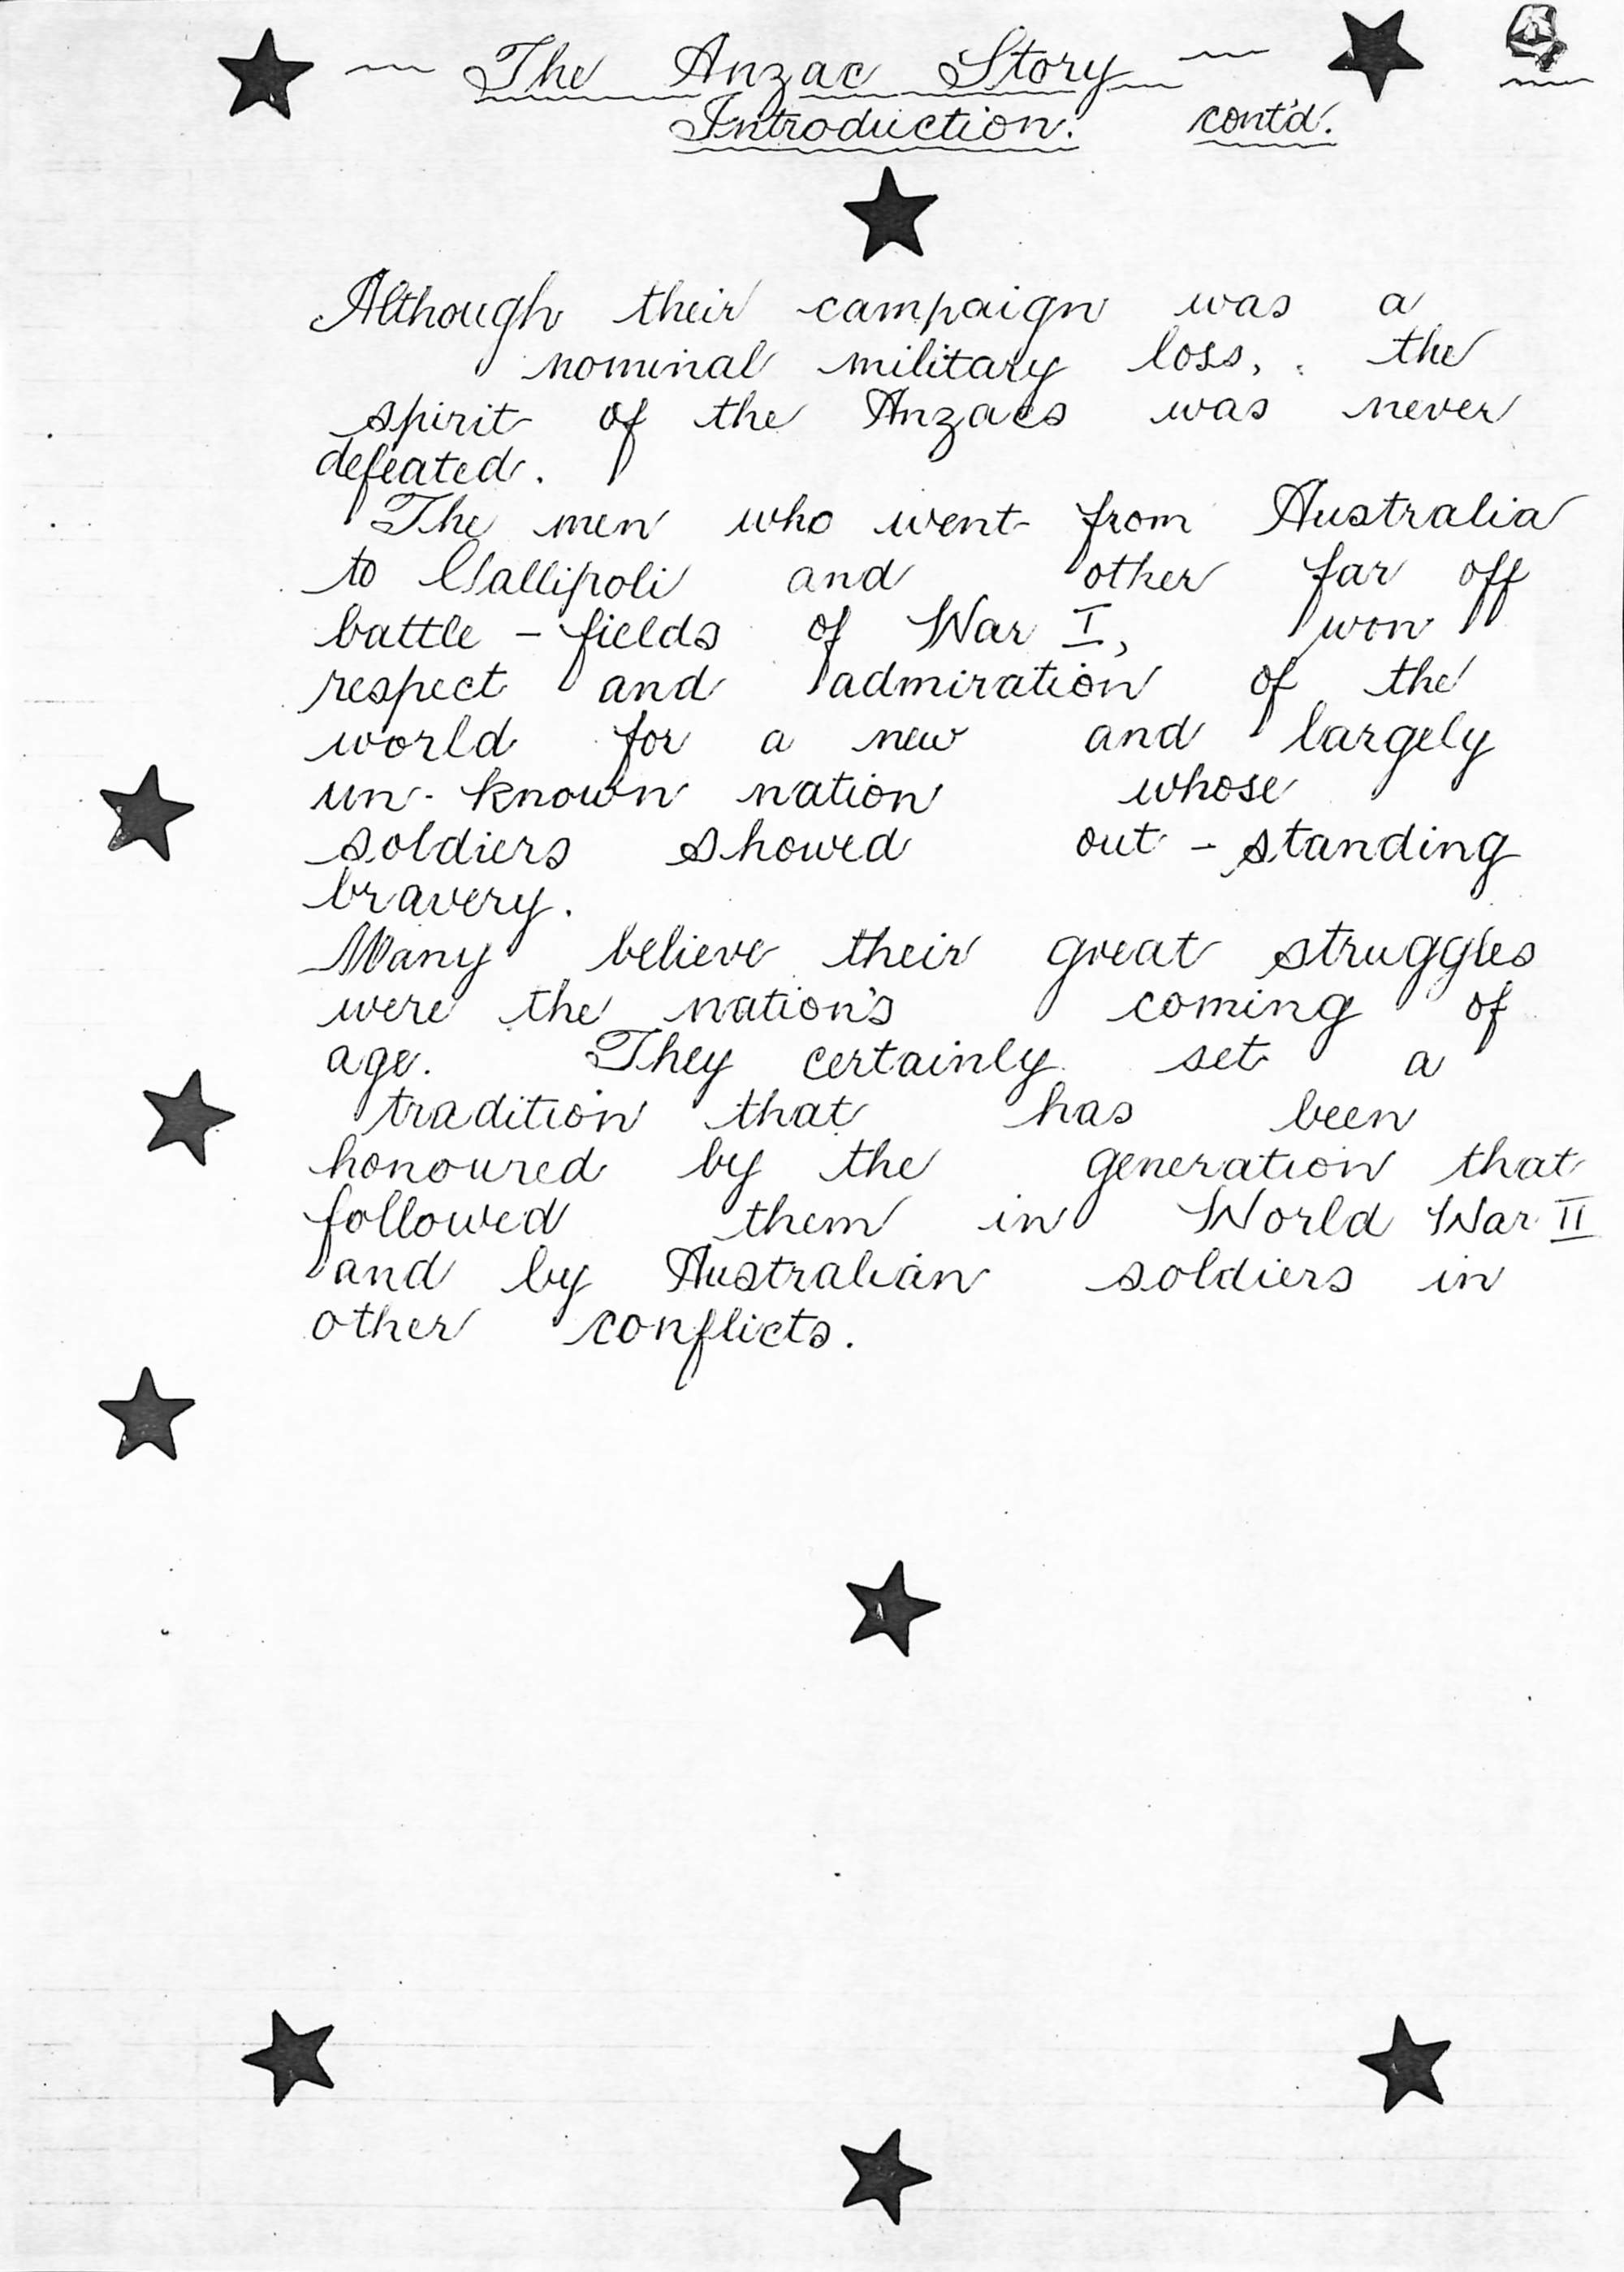 The Anzac Story
Introduction. cont'd.
Although their campaign was a
nominal military loss, the
spirit of the Anzacs was never
defeated.
The men who went from Australia
to Gallipoli and other far off
battle - fields of War I, won
respect and admiration of the
world for a new and largely
un-known nation whose
soldiers showed out - standing
bravery.
Many believe their great struggles
were the nation's coming of
age. They certainly set a
tradition that has been
honoured by the generation that
followed them in World War II
and by Australian soldiers in
other conflicts.